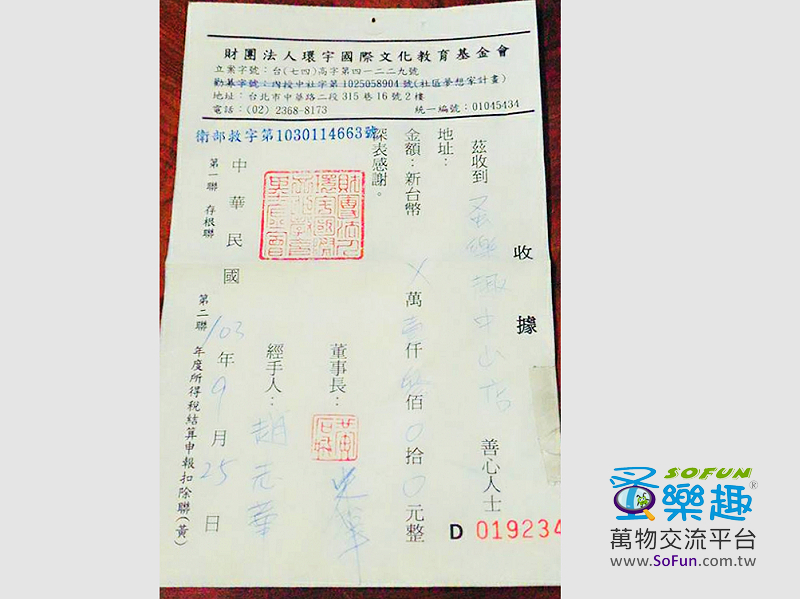 財團法人環宇國際文化教育基金會
立案字號：台(七四)高字第四一二二九號
勸募字號：內授中社字第1025058904號(社區夢想家計畫)
地址：台北市中華路二段315巷16號2樓
電話：(02) 2368-8173 統一編號：01045434
衛部救字第1030114663號
收據
茲收到 圣樂趣中山店 善心人士
地址：
金額：新台幣 X 萬 壹 仟 佰 0 拾 0 元整
深表感謝。
董事長：
經手人：趙元華
中華民國 103 年 9 月 25 日
第一聯 存根聯
第二聯 年度所得稅結算申報扣除聯(黃)
D 019234
SOFUN
圣樂趣®
萬物交流平台
www.SoFun.com.tw